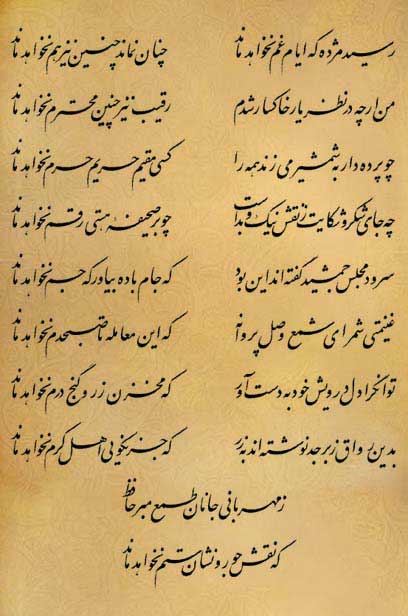 رسید مژده که ایام غم نخواهد ماند چنان نماند چنین نیز هم نخواهد ماند
من ارچه در نظر یار خاکسار شدم رقیب نیز چنین محترم نخواهد ماند
چو پرده دار به شمشیر می زند همه را کسی مقیم حریم حرم نخواهد ماند
چه جای شکر و شکایت ز نقش نیک و بد است چو بر صحیفه هستی رقم نخواهد ماند
سرود مجلس جمشید گفته اند این بود که جام باده بیاور که جم نخواهد ماند
غنیمتی شمر ای شمع وصل پروانه که این معامله تا صبحدم نخواهد ماند
توانگرا دل درویش خود به دست آور که مخزن زر و گنج درم نخواهد ماند
بدین رواق زبرجد نوشته اند به زر که جز نکویی اهل کرم نخواهد ماند
ز مهربانی جانان طمع مبر حافظ
که نقش جور و نشان ستم نخواهد ماند